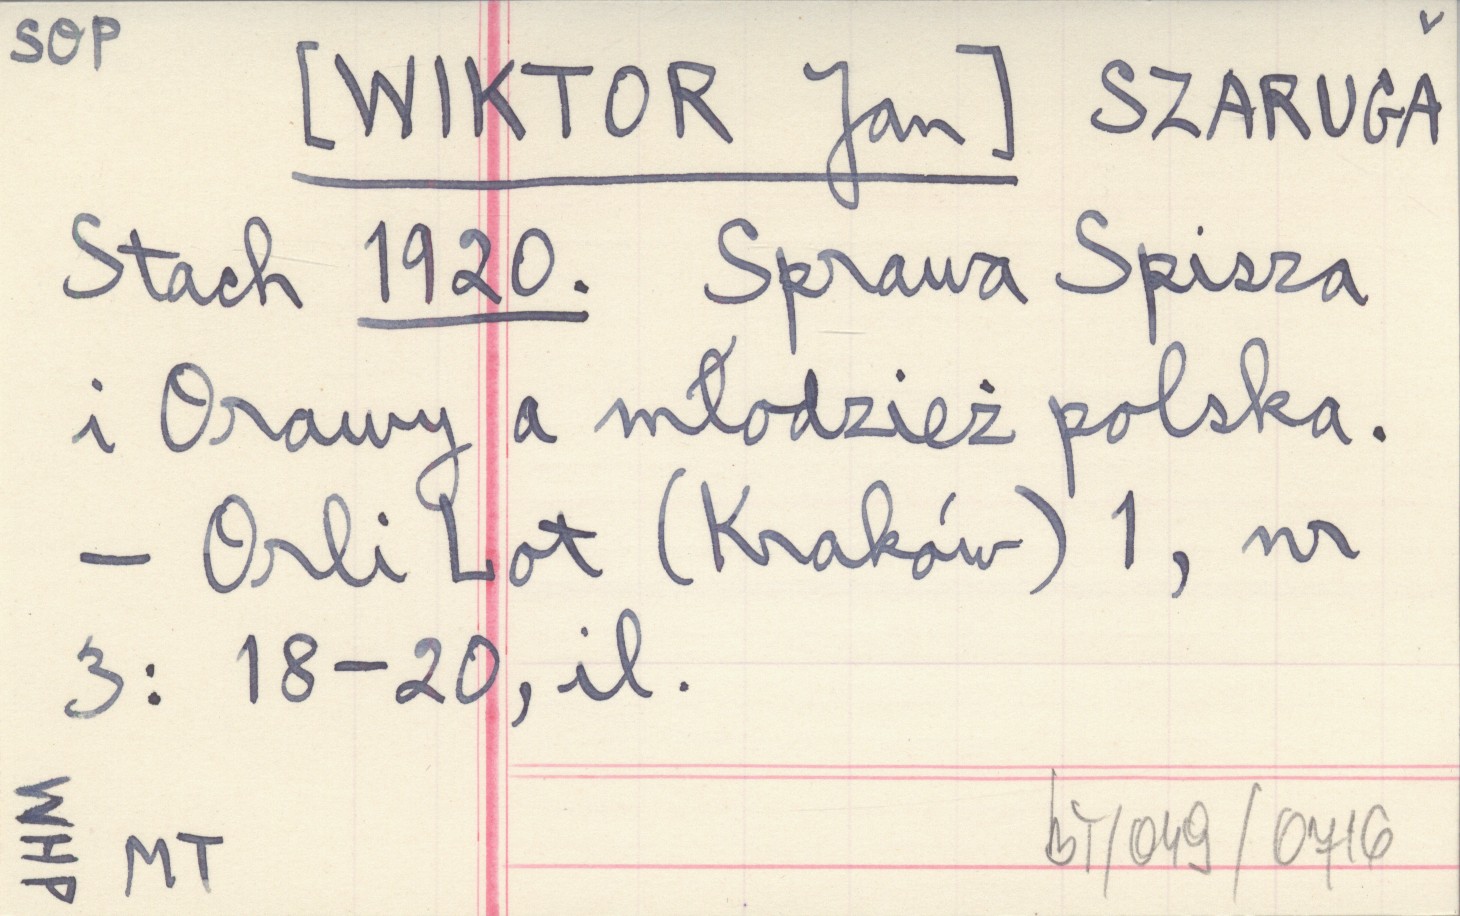 SOP
[WIKTOR Jan] SZARUGA
Stach 1920. Sprawa Spisza
i Orawy a młodzież polska.
– Orli Lot (Kraków) 1, nr
3: 18–20, il.
WHP
MT
bT/049/0716